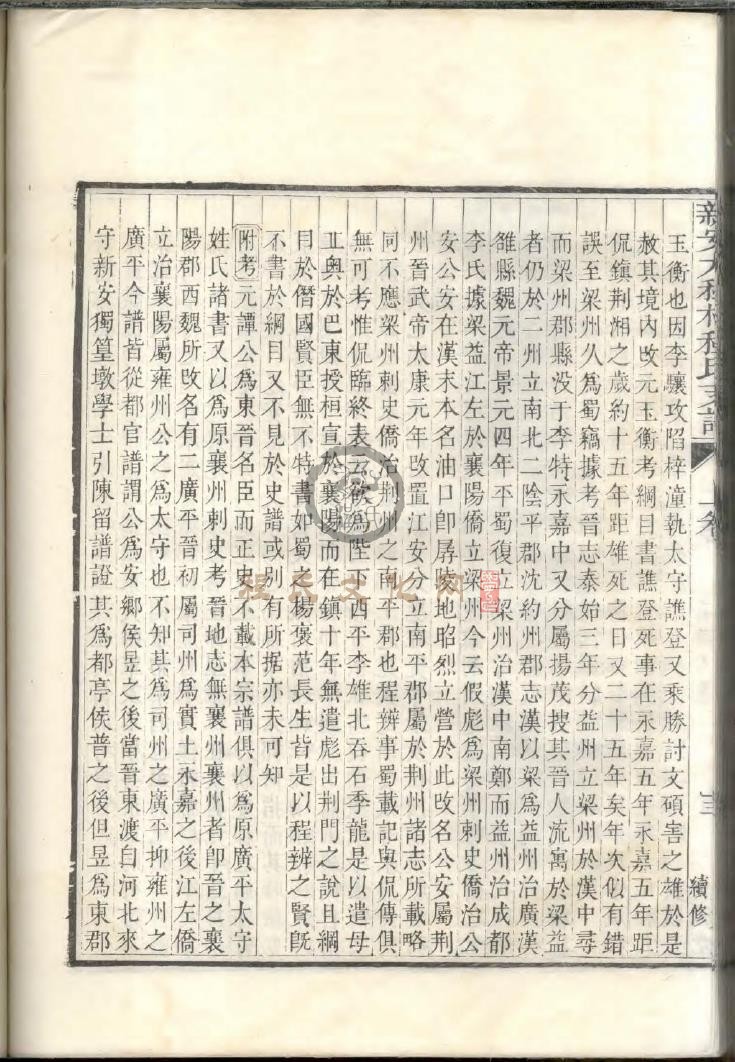 新安大程村程氏支譜
續修
玉衡也因李驤攻陷梓潼執太守譙登又乘勝討文碩害之雄於是
赦其境內改元玉衡考綱目書譙登死事在永嘉五年永嘉五年距
侃鎮荆湘之歲約十五年距雄死之日又二十五年矣年次似有錯
誤至梁州久爲蜀竊據考晉志泰始三年分益州立梁州於漢中尋
而梁州郡縣没于李特永嘉中又分屬揚茂搜其晉人流寓於梁益
者仍於二州立南北二陰平郡沈約州郡志漢以梁爲益州治廣漢
雒縣魏元帝景元四年平蜀復立梁州治漢中南鄭而益州治成都
李氏據梁益江左於襄陽僑立梁州今云假彪爲梁州刺史僑治公
安公安在漢末本名油口卽孱陵地昭烈立營於此改名公安屬荆
州晉武帝太康元年改置江安分立南平郡屬於荆州諸志所載略
同不應梁州刺史僑治荆州之南平郡也程辨事蜀載記與侃傳俱
無可考惟侃臨終表云欲爲陛下西平李雄北吞石季龍是以遣毋
丘奥於巴東授桓宣於襄陽而在鎮十年無遣彪出荆門之說且綱
目於僭國賢臣無不特書如蜀之楊褒范長生皆是以程辨之賢旣
不書於綱目又不見於史譜或別有所据亦未可知
附考元譚公爲東晉名臣而正史不載本宗譜俱以爲原廣平太守
姓氏諸書又以爲原襄州刺史考晉地志無襄州襄州者卽晉之襄
陽郡西魏所改名有二廣平晉初屬司州爲實土永嘉之後江左僑
立治襄陽屬雍州公之爲太守也不知其爲司州之廣平抑雍州之
廣平今譜皆從都官譜謂公爲安鄉侯昱之後當晉東渡自河北來
守新安獨篁墩學士引陳留譜證其爲都亭侯普之後但昱爲東郡